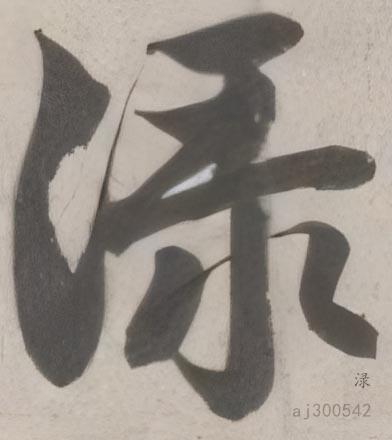 渌
渌
aj300542